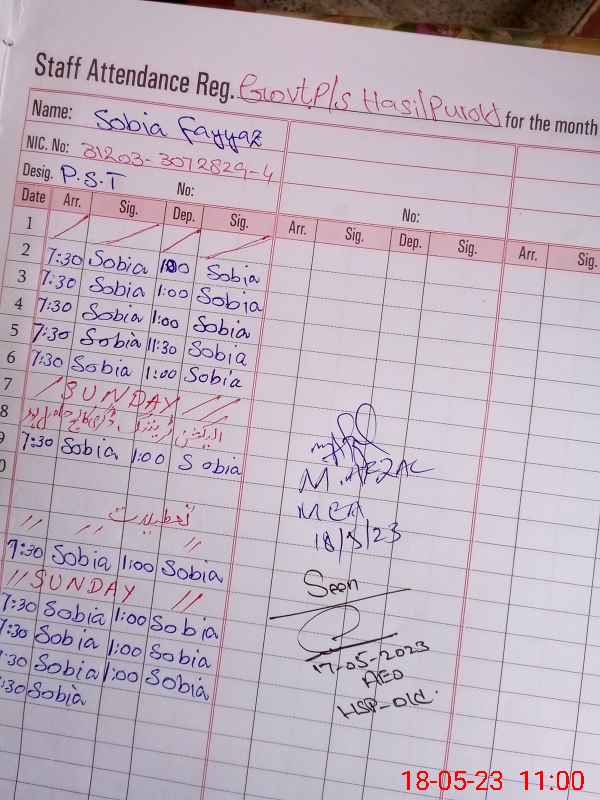 Staff Attendance Reg. Govt P/S Hasil Purold for the month
Name: Sobia Fayyaz
NIC. No: 31203-3072829-4
Desig. P.S.T No: No:
Date Arr. Sig. Dep. Sig. Arr. Sig. Dep. Sig. Arr. Sig.
1
2 7:30 Sobia 1:00 Sobia
3 7:30 Sobia 1:00 Sobia
4 7:30 Sobia 1:00 Sobia
5 7:30 Sobia 11:30 Sobia
6 7:30 Sobia 1:00 Sobia
7 SUNDAY
8 الیکشن ٹریننگ
9 7:30 Sobia 1:00 Sobia
0
تعطیلات
7:30 Sobia 1:00 Sobia
SUNDAY
7:30 Sobia 1:00 Sobia
7:30 Sobia 1:00 Sobia
:30 Sobia 1:00 Sobia
:30 Sobia
M. AFZAL
MEA
18/5/23
Seen
17-05-2023
AEO
HSP-old.
18-05-23 11:00